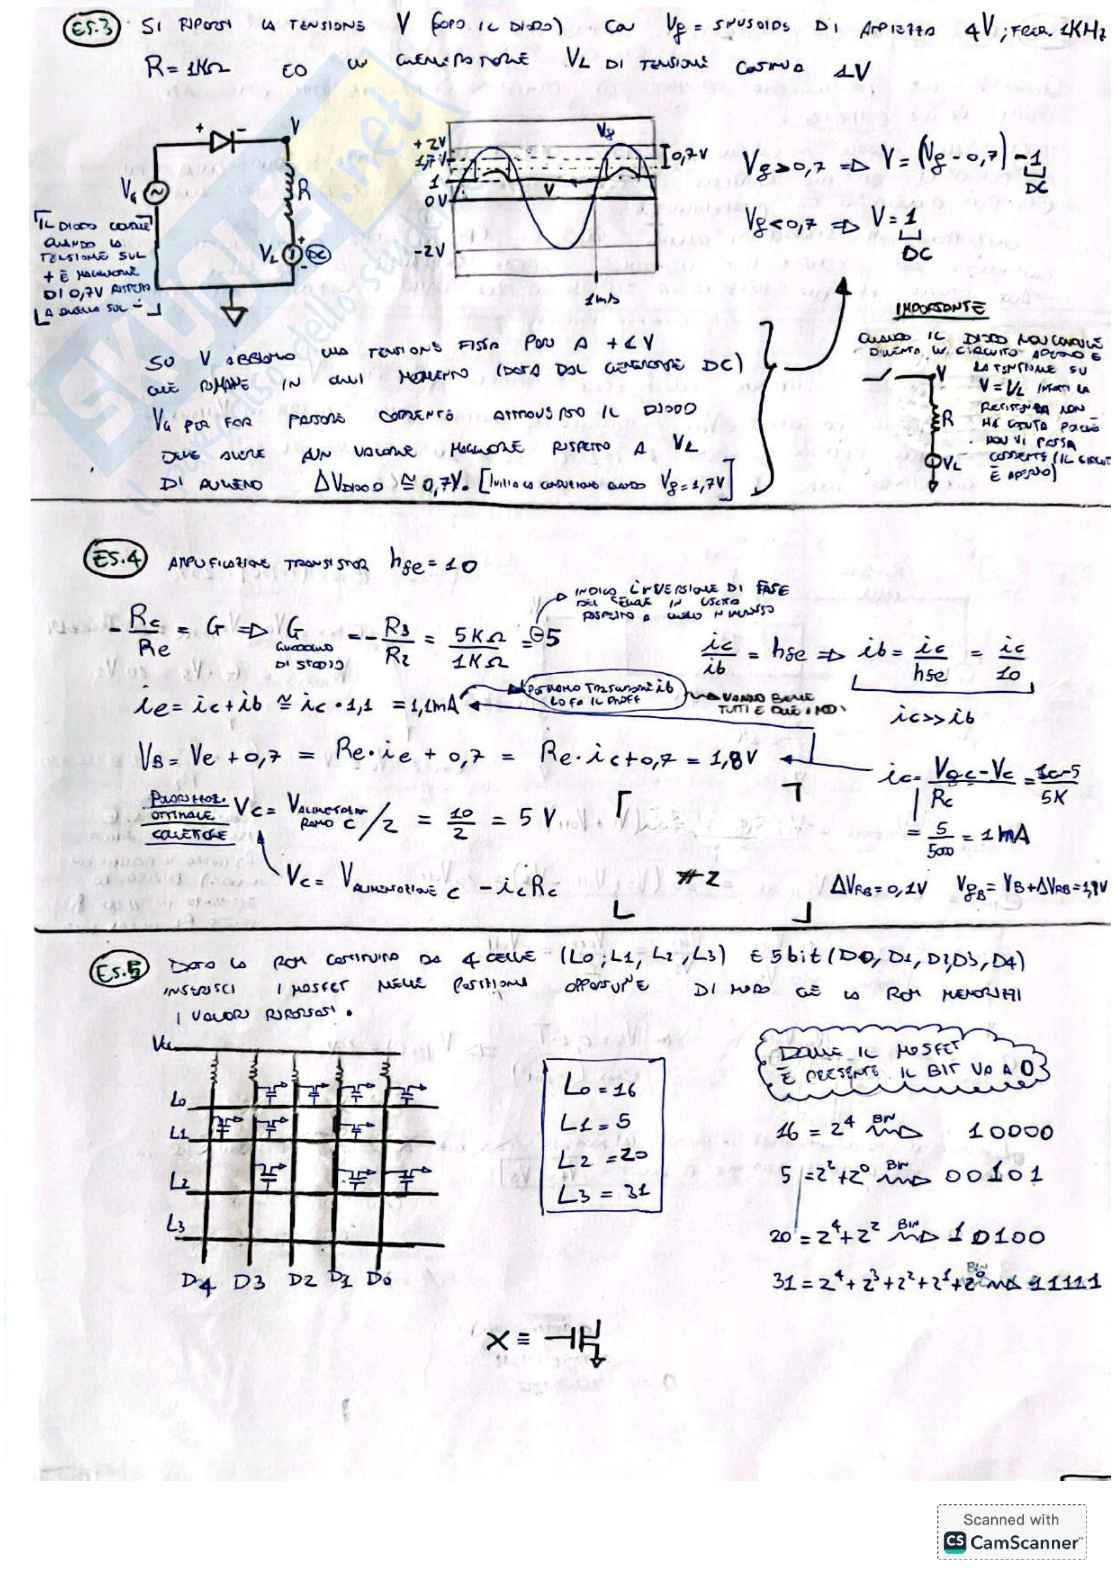 ES.3 SI RIPORTI LA TENSIONE V (DOPO IL DIODO) CON Vg = SINUSOIDE DI AMPIEZZA 4V; FREQ 1KHz
R = 1KΩ ED UN GENERATORE VL DI TENSIONE CONTINUA 1V
+ - V
VG R
VL + - DC
IL DIODO CONDUCE
QUANDO LA
TENSIONE SUL
+ È MAGGIORE
DI 0,7V RISPETTO
A QUELLA SUL -
+2V
1,7V
1
0V
-2V
Vg
V
0,7V
1ms
Vg>0,7 => V = (Vg - 0,7) - 1
DC
Vg<0,7 => V = 1
DC
SU V ABBIAMO UNA TENSIONE FISSA PARI A +1V
CHE RIMANE IN OGNI MOMENTO (DATA DAL GENERATORE DC)
VG PER FAR PASSARE CORRENTE ATTRAVERSO IL DIODO
DEVE AVERE UN VALORE MAGGIORE RISPETTO A VL
DI ALMENO ΔVDIODO ≅ 0,7V. [INIZIO LA CONDUZIONE QUANDO Vg = 1,7V]
IMPORTANTE
QUANDO IL DIODO NON CONDUCE
DIVENTA UN CIRCUITO APERTO E
LA TENSIONE SU
V = VL INFATTI LA
RESISTENZA NON
HA CADUTA POICHÈ
NON VI PASSA
CORRENTE (IL CIRCUITO
È APERTO)
V
R
VL
ES.4 AMPLIFICAZIONE TRANSISTOR hfe = 10
- Rc/Re = G => G GUADAGNO DI STADIO = - R3/R2 = 5KΩ/1KΩ = -5
INDICA INVERSIONE DI FASE
DEL SEGNALE IN USCITA
RISPETTO A QUELLO IN INGRESSO
ic/ib = hfe => ib = ic/hfe = ic/10
ic>>ib
ie = ic + ib ≅ ic · 1,1 = 1,1mA
POTREMMO TRASCURARE ib
LO FA IL PROFF
VANNO BENE
TUTTI E DUE I MODI
VB = Ve + 0,7 = Re · ie + 0,7 = Re · ic + 0,7 = 1,8V
ic = Vcc - Vc/Rc = 10-5/5K
= 5/5000 = 1mA
POLARIZZAZ.
OTTIMALE
COLLETTORE
Vc = VALIMENTAZION RAMO C / 2 = 10/2 = 5 V
Vc = VALIMENTAZIONE C - icRc
#2
ΔVRB = 0,1V VgB = VB + ΔVRB = 1,9V
ES.5 DATA LA ROM COSTITUITA DA 4 CELLE (L0, L1, L2, L3) E 5 bit (D0, D1, D2, D3, D4)
INSERISCI I MOSFET NELLE POSIZIONI OPPORTUNE DI MODO CHE LA ROM MEMORIZZI
I VALORI RIPORTATI.
Vcc
L0
L1
L2
L3
D4 D3 D2 D1 D0
L0 = 16
L1 = 5
L2 = 20
L3 = 31
DOVE IL MOSFET
È PRESENTE IL BIT VA A 0
16 = 2^4 BIN 10000
5 = 2^2 + 2^0 BIN 00101
20 = 2^4 + 2^2 BIN 10100
31 = 2^4 + 2^3 + 2^2 + 2^1 + 2^0 BIN 11111
X ≡
SKUOLA.net
Scanned with
CS CamScanner